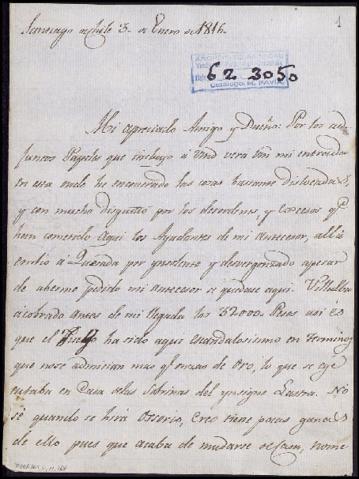 Santiago de Chile 3. de Enero de 1816.
1
62 3050
Mi apreciado Amigo y Dueño: Por los ad-
juntos Papeles que incluyo a Vmd vera Vm mi entrada
en esta
he encontrado las cosas bastante dislocadas,
y con mucho disgusto por los desordenes, y
qe
han cometido aqui los Ayudantes de mi antecesor, alli
embio á Quesada por
y desvergonzado apesar
de aberme pedido mi antecesor se quedase aqui. Villalba
acobrado antes de mi llegada los 32000. Pesos asi es
que el
ha sido aqui escandalosisimo en terminos
que nose admitian mas qe onzas de Oro, lo que se eje-
cutaba en Casa delas Sobrinas del ynsigne Lastra. No
sé quando se hirá Osorio, creo tiene pocas ganas
de ello pues que acaba de mudarse de Casa, tome